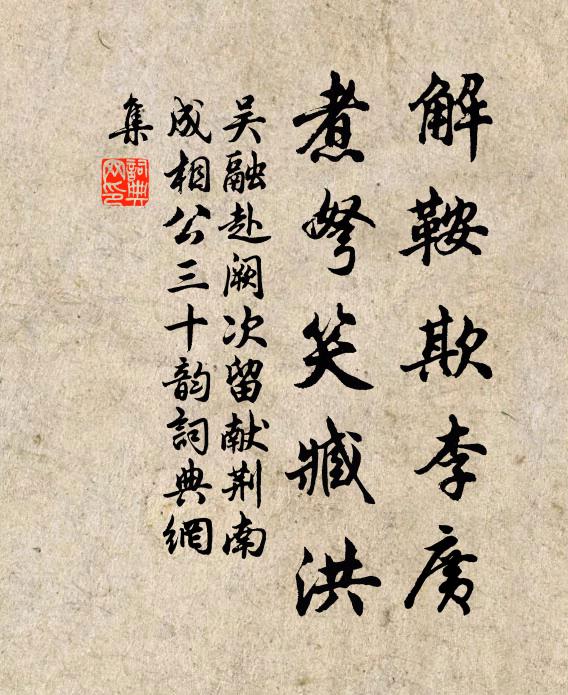 解鞍欺李廣
煮弩笑臧洪
吴融赴阙次留献荆南
成相公三十韵詞典網
集
詞典
网印